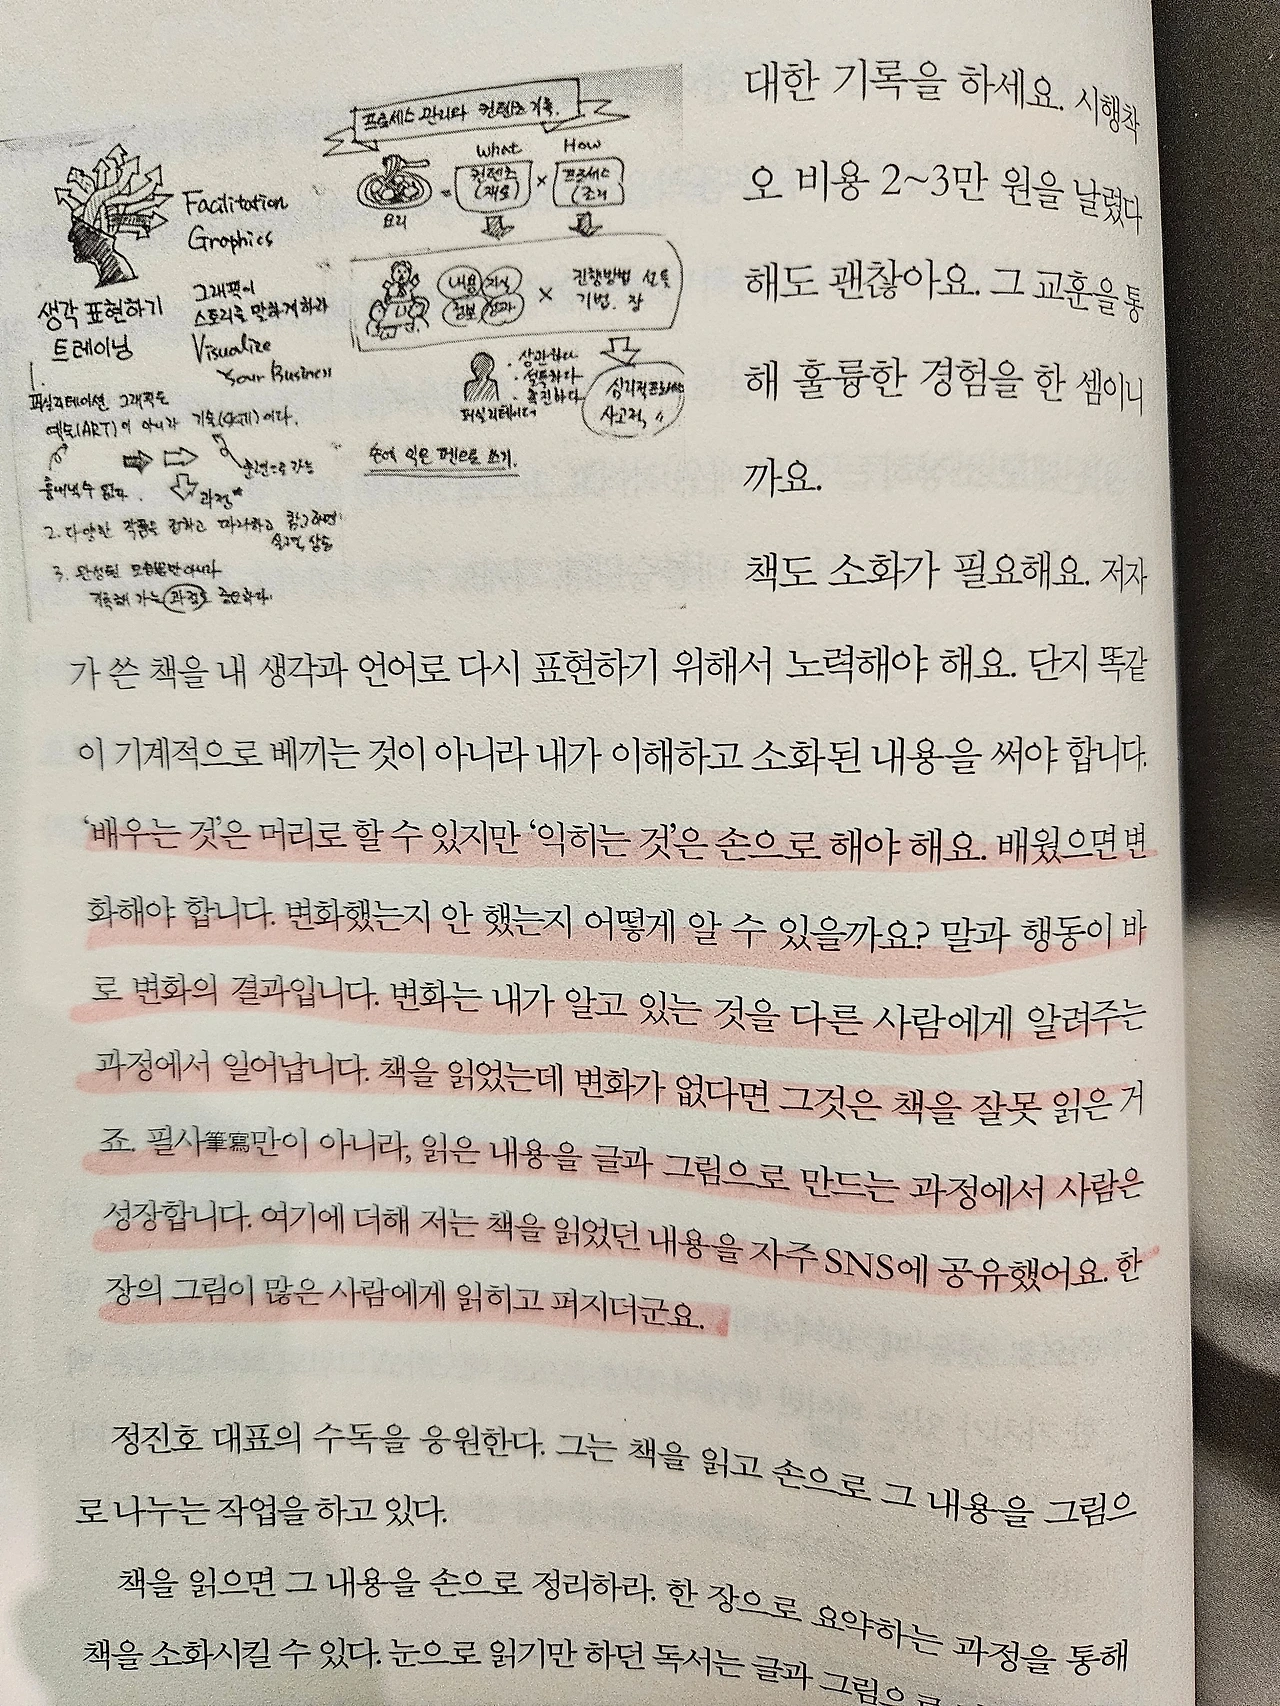 프로세스 관리와 컨텐츠 기술.
What
How
컨텐츠
(재료)
×
프로세스
(조리)
요리
=
Facilitation
Graphics
생각 표현하기
트레이닝
그래픽이
스토리를 말하게하라
Visualize
Your Business
내용
지식
정보
×
진행방법 선택
기법. 장
퍼실리테이터
· 설득하다
· 촉진하다
심리적프로세스
사고적 〃
손에 익은 펜으로 쓰기.
1.
퍼실리테이션 그래픽은
예술(ART)이 아니라 기술(Skill)이다.
훈련으로 가능
흉내낼수 없다.
과정
2. 다양한 작품을 접하고 따라하고 참고하면
3. 완성된 모습뿐만아니라
기록해 가는 과정도 중요하다.
대한 기록을 하세요. 시행착
오 비용 2~3만 원을 날렸다
해도 괜찮아요. 그 교훈을 통
해 훌륭한 경험을 한 셈이니
까요.
책도 소화가 필요해요. 저자
가 쓴 책을 내 생각과 언어로 다시 표현하기 위해서 노력해야 해요. 단지 똑같
이 기계적으로 베끼는 것이 아니라 내가 이해하고 소화된 내용을 써야 합니다.
‘배우는 것’은 머리로 할 수 있지만 ‘익히는 것’은 손으로 해야 해요. 배웠으면 변
화해야 합니다. 변화했는지 안 했는지 어떻게 알 수 있을까요? 말과 행동이 바
로 변화의 결과입니다. 변화는 내가 알고 있는 것을 다른 사람에게 알려주는
과정에서 일어납니다. 책을 읽었는데 변화가 없다면 그것은 책을 잘못 읽은 거
죠. 필사筆寫만이 아니라, 읽은 내용을 글과 그림으로 만드는 과정에서 사람은
성장합니다. 여기에 더해 저는 책을 읽었던 내용을 자주 SNS에 공유했어요. 한
장의 그림이 많은 사람에게 읽히고 퍼지더군요.
정진호 대표의 수독을 응원한다. 그는 책을 읽고 손으로 그 내용을 그림으
로 나누는 작업을 하고 있다.
책을 읽으면 그 내용을 손으로 정리하라. 한 장으로 요약하는 과정을 통해
책을 소화시킬 수 있다. 눈으로 읽기만 하던 독서는 글과 그림으로